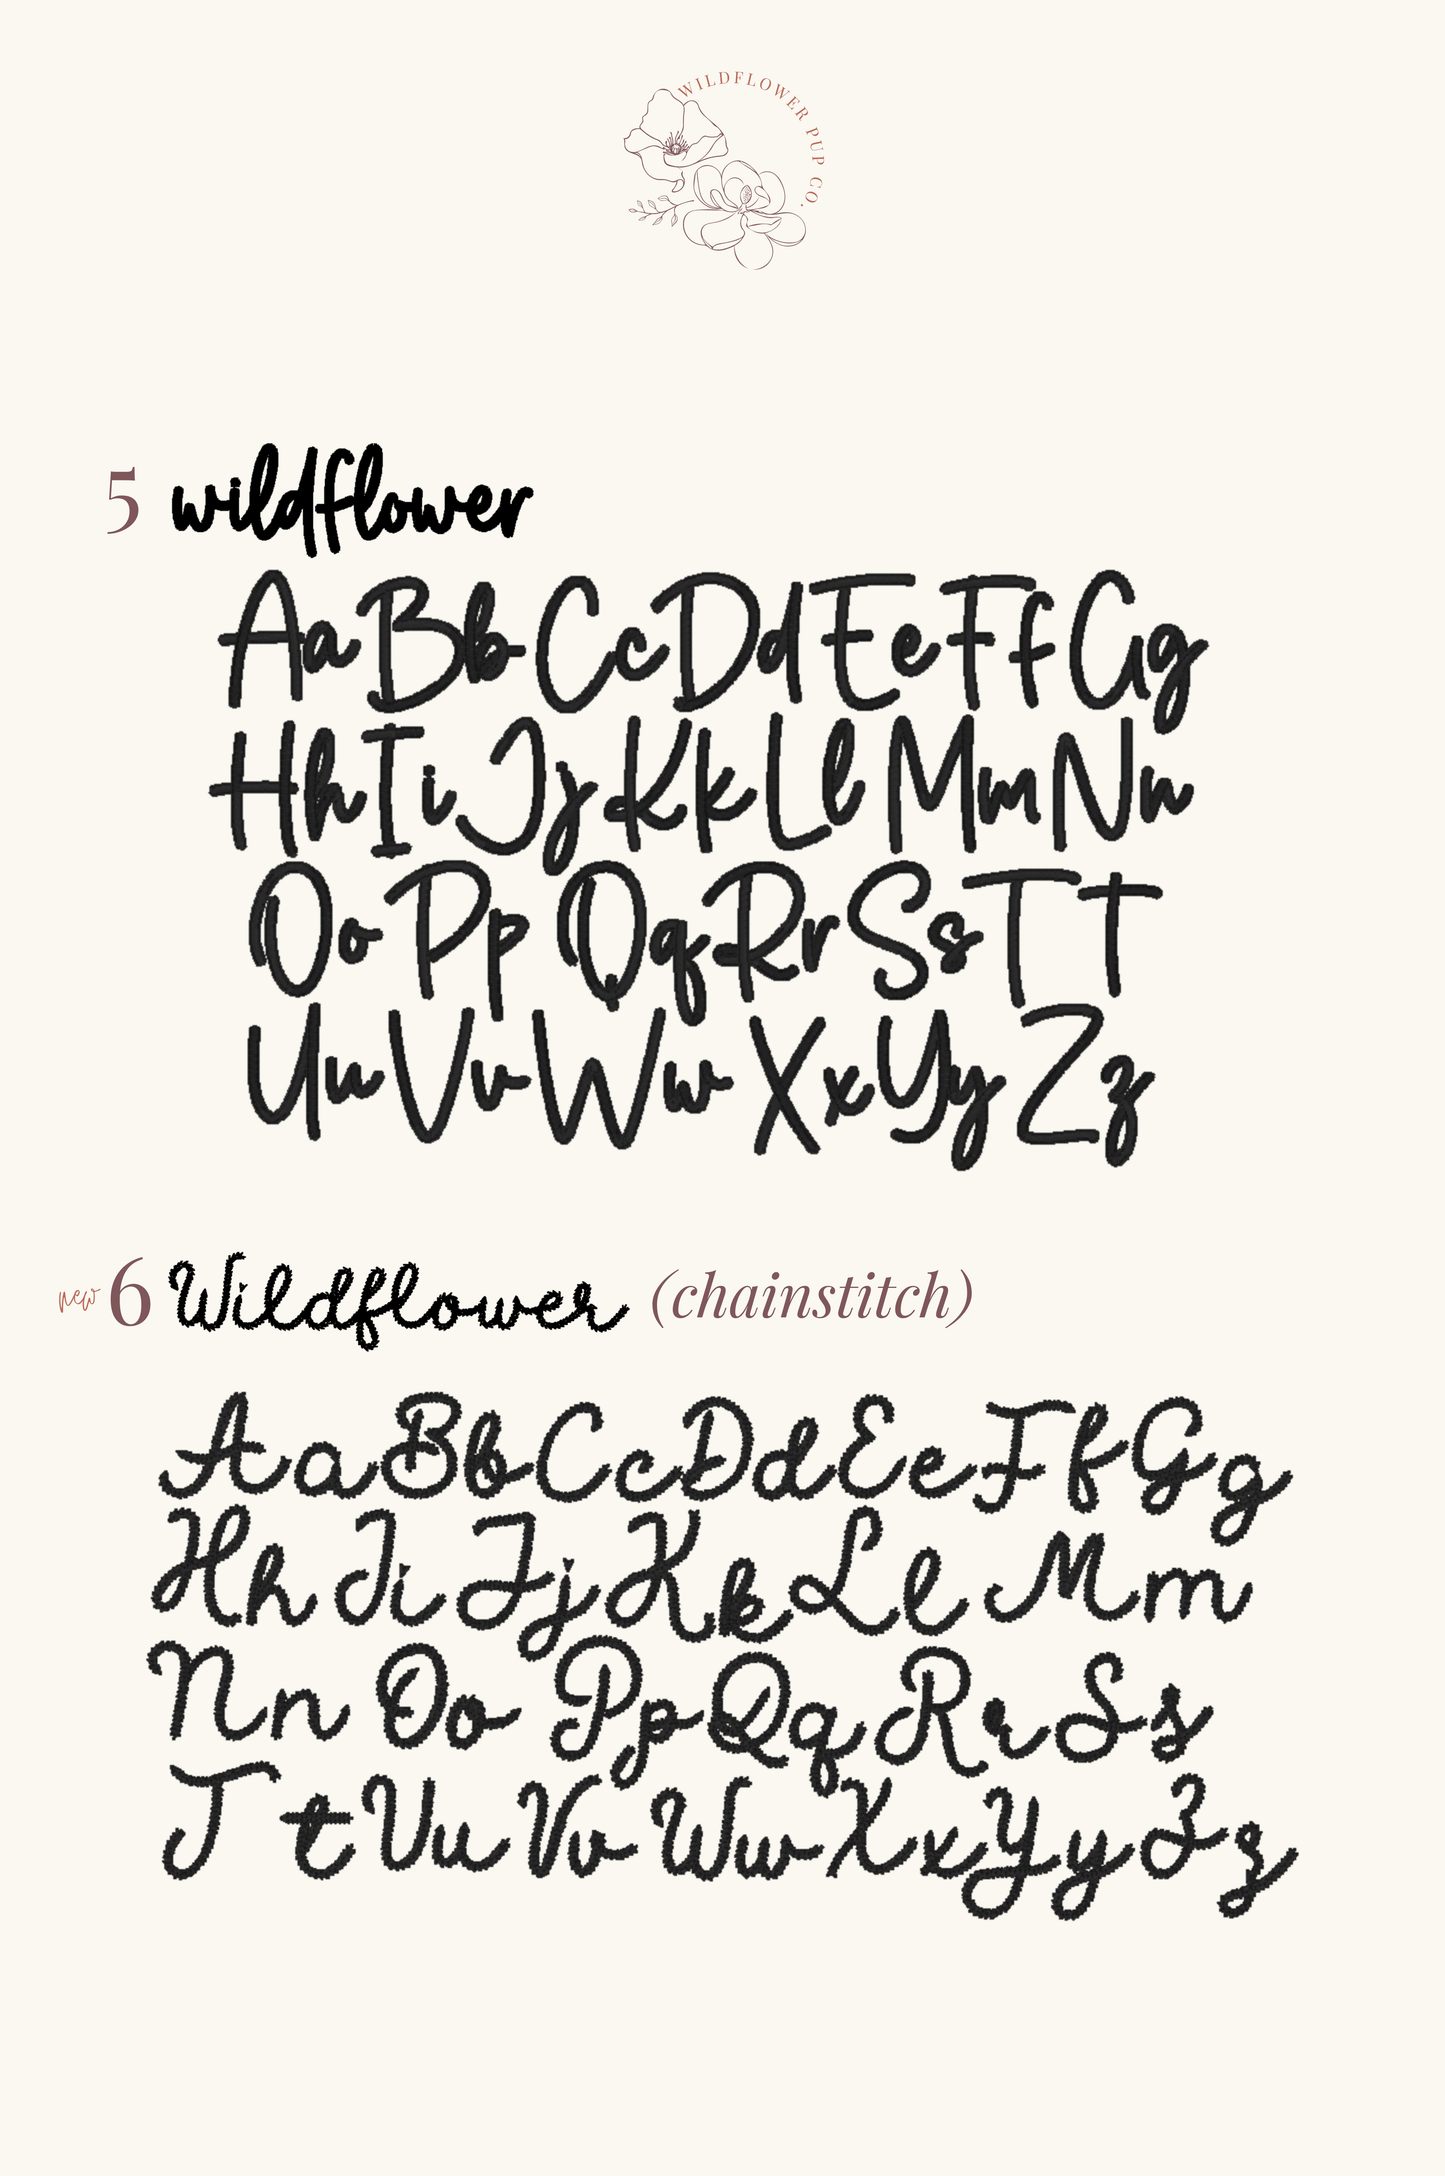 WILDFLOWER PUP CO.
5 wildflower
Aa Bb Cc Dd Ee Ff Gg
Hh Ii Jj Kk Ll Mm Nn
Oo Pp Qq Rr Ss Tt
Uu Vv Ww Xx Yy Zz
new 6 Wildflower (chainstitch)
Aa Bb Cc Dd Ee Ff Gg
Hh Ii Jj Kk Ll Mm
Nn Oo Pp Qq Rr Ss
Tt Uu Vv Ww Xx Yy Zz